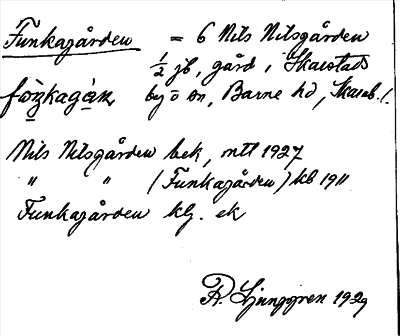 Funkagården = 6 Nils Nilsgården
1/2 jb, gård i Skarstads
by o sn, Barne hd, Skarab. l.
Nils Nilsgården bek, mtl 1927
" " (Funkagården) kb 1911
Funkagården klj. ek
R. Ljunggren 1929